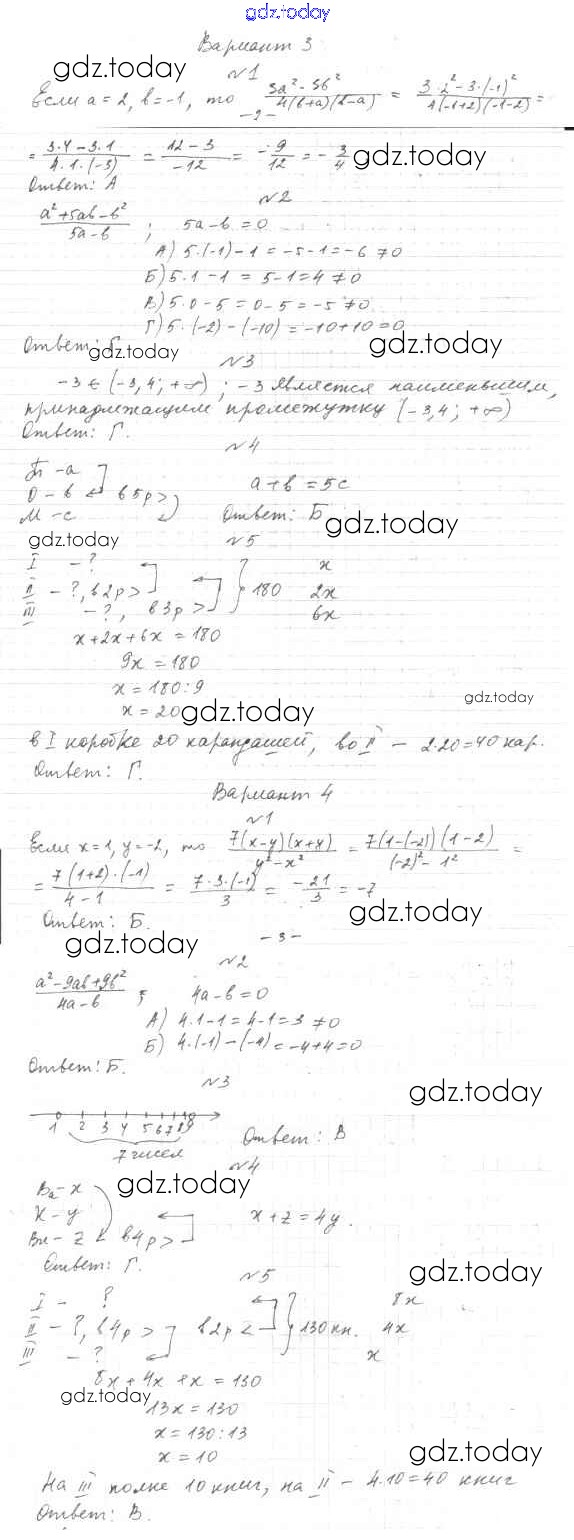 gdz.today
Вариант 3
gdz.today
№1
Если a = 2, b = -1, то (3a² - 3b²)/(4(b+a)(b-a)) = (3·2² - 3·(-1)²)/(4(-1+2)(-1-2)) =
-2-
= (3·4 - 3·1)/(4·1·(-3)) = (12 - 3)/(-12) = -9/12 = -3/4 gdz.today
Ответ: А
№2
(a² + 5ab - b²)/(5a - b) ; 5a - b = 0
А) 5·(-1) - 1 = -5 - 1 = -6 ≠ 0
Б) 5·1 - 1 = 5 - 1 = 4 ≠ 0
В) 5·0 - 5 = 0 - 5 = -5 ≠ 0
Г) 5·(-2) - (-10) = -10 + 10 = 0
Ответ: Г.
gdz.today gdz.today
№3
-3 ∈ (-3,4; +∞) ; -3 является наименьшим,
принадлежащим промежутку (-3,4; +∞)
Ответ: Г.
№4
- a
О - b в 5р > a + b = 5c
М - c Ответ: Б
gdz.today gdz.today
№5
I - ? x
II - ?, в 2р > 180 2x
III - ?, в 3р > 6x
x + 2x + 6x = 180
9x = 180
x = 180 : 9
x = 20 gdz.today gdz.today
В I коробке 20 карандашей, во II - 2·20 = 40 кар.
Ответ: Г.
Вариант 4
№1
Если x = 1, y = -2, то (7(x-y)(x+y))/(y² - x²) = (7(1-(-2))(1-2))/((-2)² - 1²) =
= (7(1+2)·(-1))/(4 - 1) = (7·3·(-1))/3 = -21/3 = -7
Ответ: Б.
gdz.today gdz.today
-3-
№2
(a² - 9ab + 9b²)/(4a - b) ; 4a - b = 0
А) 4·1 - 1 = 4 - 1 = 3 ≠ 0
Б) 4·(-1) - (-4) = -4 + 4 = 0
Ответ: Б.
№3
gdz.today
1 2 3 4 5 6 7 8 9
7 чисел Ответ: В
№4
gdz.today
Ва - x
К - y x + z = 4y.
Вл - z в 4р >
Ответ: Г.
№5
gdz.today
I - ? 8x
II - ?, в 4р > в 2р < 130 кн. 4x
III - ? x
8x + 4x + x = 130
gdz.today
13x = 130
x = 130 : 13
x = 10
gdz.today
На III полке 10 книг, на II - 4·10 = 40 книг
Ответ: В.